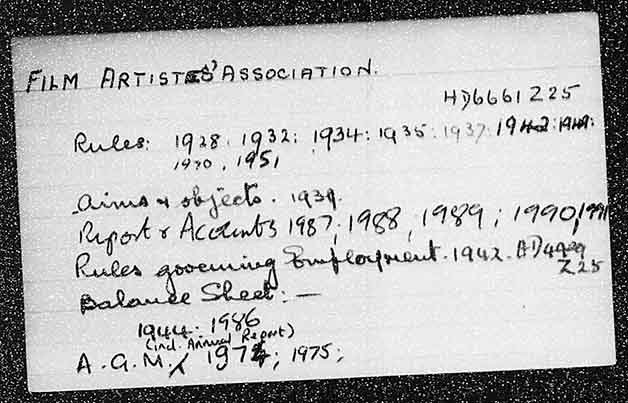 FILM ARTISTES' ASSOCIATION.
HD6661 Z25
Rules: 1928. 1932: 1934: 1935: 1937: 1942: 1949:
1951
Aims & objects. 1939.
Report & Accounts 1987; 1988, 1989; 1990, 1991
Rules governing Employment. 1942. HD4929
Z25
Balance Sheet: —
1944: 1986
(incl. Annual Report)
A.G.M. 1974; 1975;